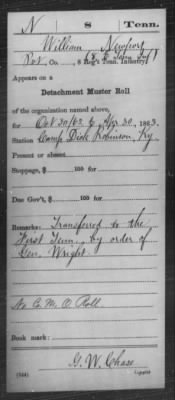 N 8 Tenn.
William Newport
Pvt, Co. 8 Reg't Tenn. Infantry.
Appears on a
Detachment Muster Roll
of the organization named above,
for Oct 30/62 to Apr 30, 1863.
Station Camp Dick Robinson, Ky
Present or absent
Stoppage, $ 100 for
Due Gov't, $ 100 for
Remarks: Transferred to the
First Tenn. by order of
Gen. Wright.
No Co. M. O. Roll.
Book mark:
G. W. Chase
(544) Copyist